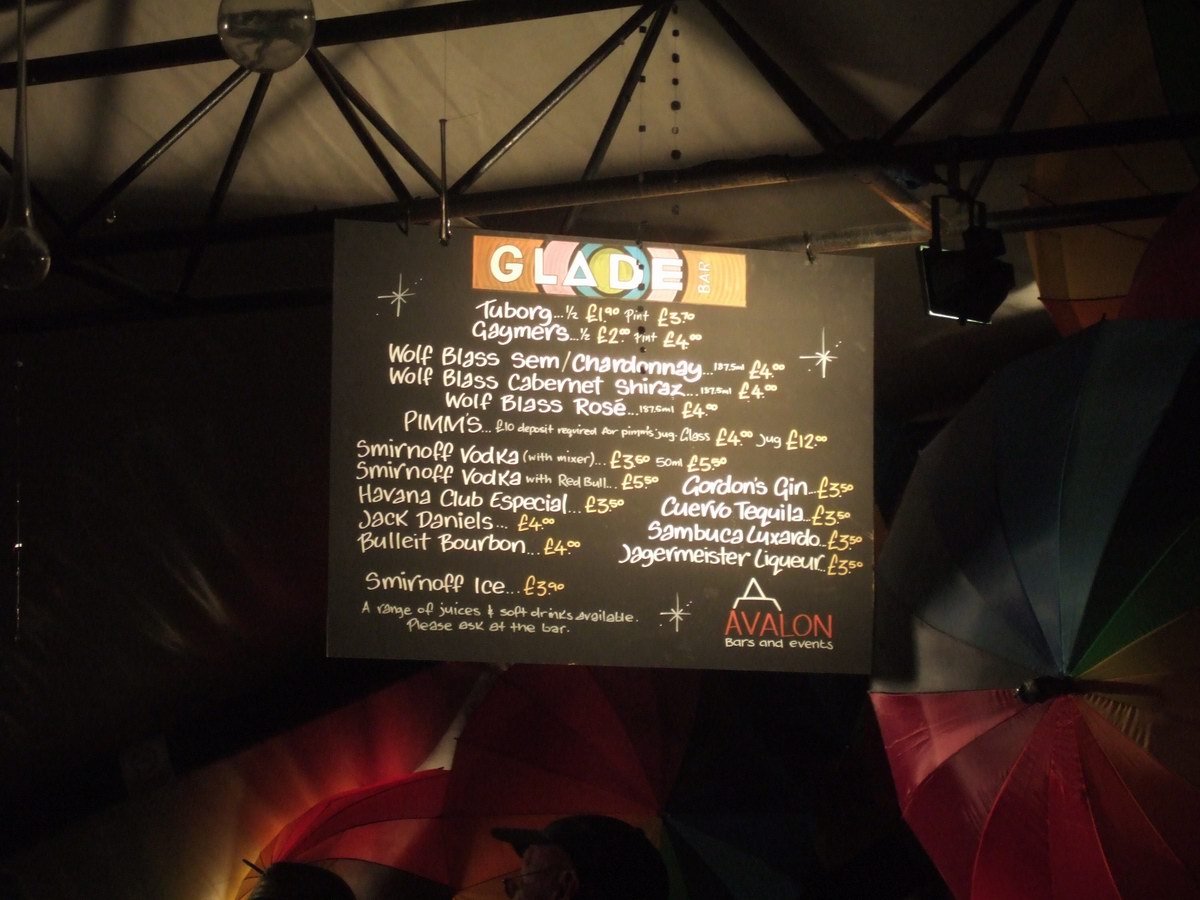 GLADE BAR
Tuborg...½ £1.90 Pint £3.70
Gaymers...½ £2.00 Pint £4.00
Wolf Blass Sem/Chardonnay...187.5ml £4.00
Wolf Blass Cabernet Shiraz...187.5ml £4.00
Wolf Blass Rosé...187.5ml £4.00
PIMM'S... £10 deposit required for pimm's jug. Glass £4.00 Jug £12.00
Smirnoff Vodka (with mixer)... £3.50 50ml £5.50
Smirnoff Vodka with Red Bull... £5.50
Havana Club Especial... £3.50
Jack Daniels... £4.00
Bulleit Bourbon... £4.00
Gordon's Gin...£3.50
Cuervo Tequila...£3.50
Sambuca Luxardo...£3.50
Jagermeister Liqueur...£3.50
Smirnoff Ice... £3.90
A range of juices & soft drinks available.
Please ask at the bar.
AVALON
Bars and events